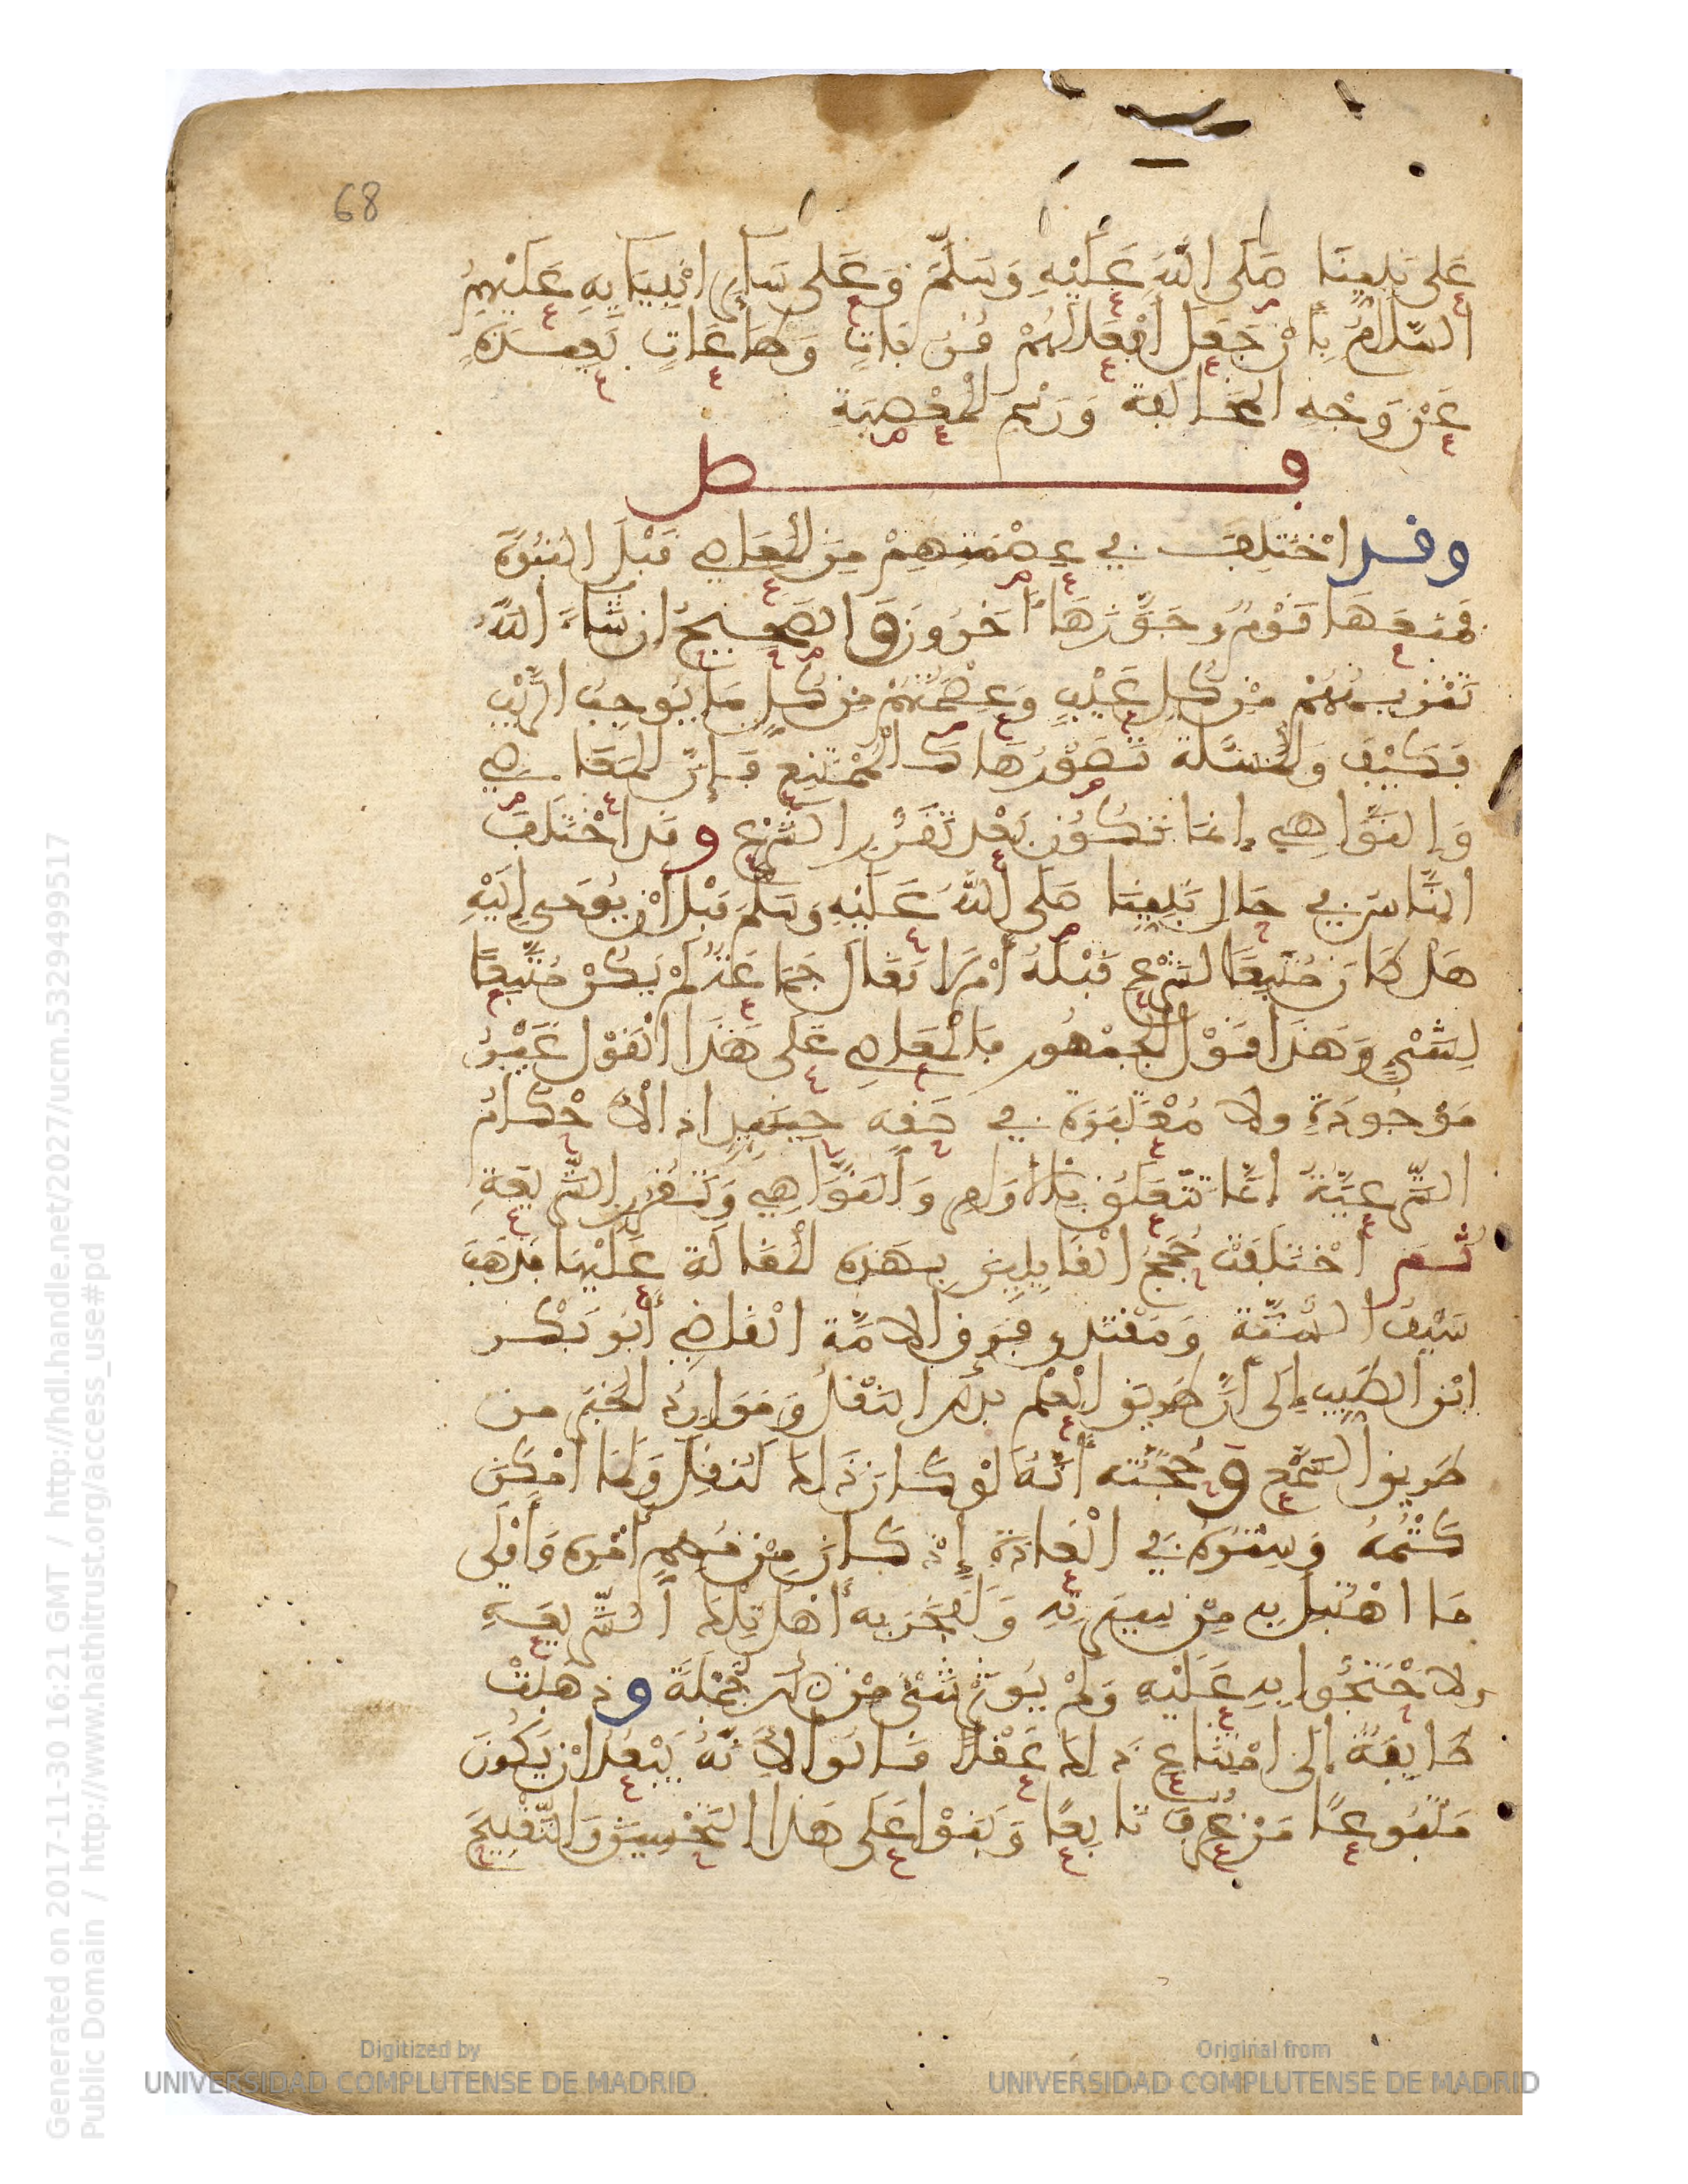 68
على نبينا صلى الله عليه وسلم وعلى سائر انبيايه عليهم
السلام بأن جعل أفعالهم قربات وطاعات بعيدة
عن وجه المخالفة ورسم المعصية
فصل
وقد اختلف في عصمتهم من المعاصي قبل النبوة
فمنعها قوم وجوزها آخرون والصحيح ان شاء الله
تنزيههم من كل عيب وعصمتهم من كل ما يوجب الريب
فكيف والمسئلة تصورها كالممتنع فإن المعاصي
والنواهي إنما تكون بعد تقرر الشرع وقد اختلف
الناس في حال نبينا صلى الله عليه وسلم قبل أن يوحى إليه
هل كان متبعا لشرع قبله أم لا فقال جماعة لم يكن متبعا
لشيء وهذا قول الجمهور فالمعاصي على هذا القول غير
موجودة ولا معتبرة في حقه حينئذ اذ الأحكام
الشرعية إنما تتعلق بالأوامر والنواهي وتقرر الشريعة
ثم اختلفت حجج القايلين بهذه المقالة عليها فذهب
سيف السنة ومقتدى فرق الامة القاضي أبو بكر
ابن الطيب إلى أن طريق العلم بذلك النقل وموارد الخبر من
طريق السمع وحجته أنه لو كان ذلك لنقل ولما أمكن
كتمه وستره في العادة إذ كان من مهم أمره وأولى
ما اهتبل به من سيرته ولفخر به أهل تلك الشريعة
ولا حتجوا به عليه ولم يوثر شيء من ذلك جملة وذهبت
طايفة إلى امتناع ذلك عقلا قالوا لأنه يبعد ان يكون
متبوعا من عرف تابعا وبنوا على هذا التحسين والتقبيح
Generated on 2017-11-30 16:21 GMT / http://hdl.handle.net/2027/ucm.5329499517
Public Domain / http://www.hathitrust.org/access_use#pd
Digitized by
UNIVERSIDAD COMPLUTENSE DE MADRID
Original from
UNIVERSIDAD COMPLUTENSE DE MADRID